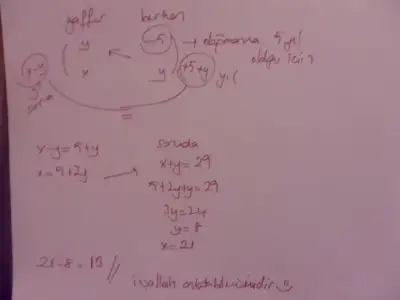 gaffur berkan
y -5 → doğmasına 5 yıl
olduğu için
x y +5+y yıl
x-y
sonra
=
x-y=5+y
x=5+2y →
soruda
x+y=29
5+2y+y=29
3y=24
y=8
x=21
21-8=13 //
inşallah anlatabilmişimdir :)